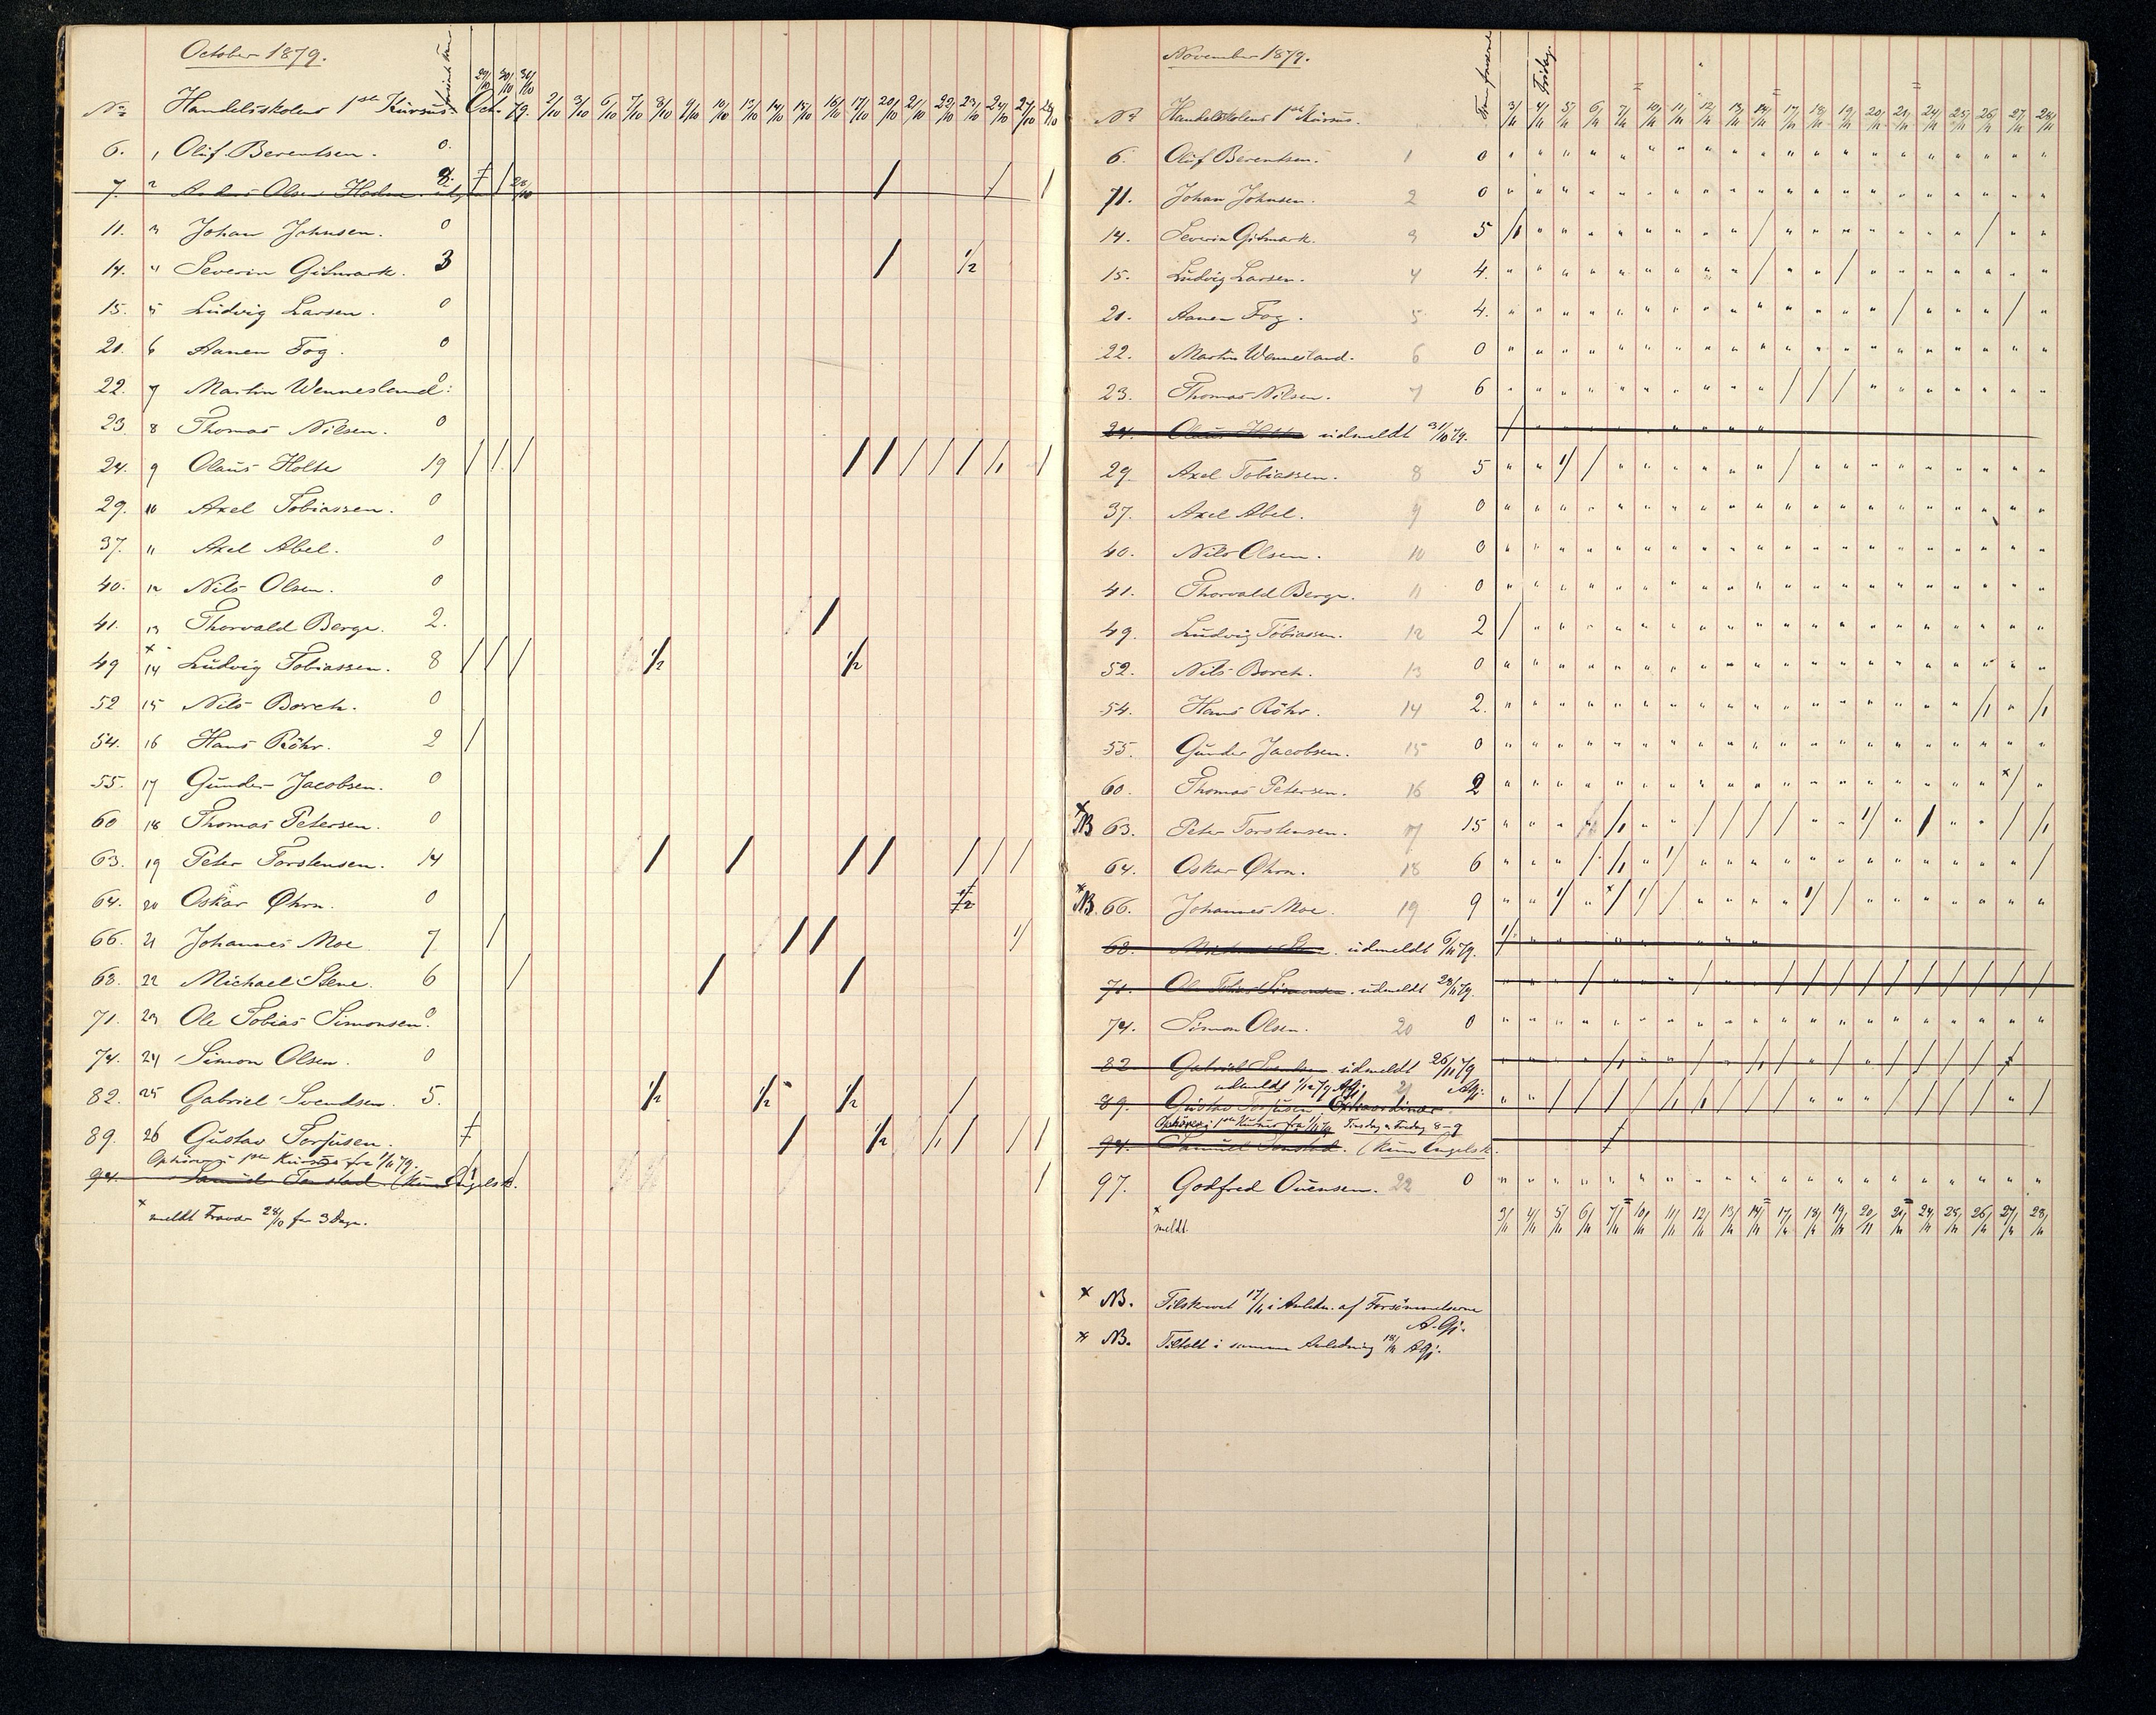 October 1879.
29/10 30/10 31/10
No Handelsskolens 1ste Kursus. Oct. 79. 2/10 3/10 6/10 7/10 8/10 9/10 10/10 13/10 14/10 15/10 16/10 17/10 20/10 21/10 22/10 23/10 24/10 27/10 28/10
6. 1 Oluf Berentsen. 0.
7. 2 Olsen
11. 3 Johan Johnsen. 0
14. 4 Severin Gitmark. 3 1/2
15. 5 Ludvig Larsen. 0
21. 6 Aanen Fog. 0
22. 7 Martin Wennesland. 0
23. 8 Thomas Nilsen. 0
24. 9 Olaus Holte 19
29. 10 Axel Tobiassen. 0
37. 11 Axel Abel. 0
40. 12 Nils Olsen. 0
41. 13 Thorvald Berge. 2.
49 14 Ludvig Tobiassen. 8 1/2 1/2
52 15 Nils Borch. 0
54. 16 Hans Röhr. 2
55. 17 Gunder Jacobsen. 0
60 18 Thomas Petersen. 0
63. 19 Peter Torstensen. 14
64. 20 Oskar Øhrn. 0
66. 21 Johannes Moe 7
68. 22 Michael Stene. 6
71. 23 Ole Tobias Simonsen. 0
74. 24 Simon Olsen. 0
82. 25 Gabriel Svendsen. 5. 1/2 1/2 1/2
89. 26 Gustav Torjusen. 1/2
Ophører i 1ste Kursus fra 1/11 79.
94. Samuel Tonstad (kun Engelsk.
x meldt Fravær 28/10 for 3 Dage.
November 1879.
Fredag.
No Handelsskolens 1ste Kursus. 3/11 4/11 5/11 6/11 7/11 10/11 11/11 12/11 13/11 14/11 17/11 18/11 19/11 20/11 21/11 24/11 25/11 26/11 27/11 28/11
6. Oluf Berentsen. 1 0
11. Johan Johnsen. 2 0
14. Severin Gitmark. 3 5
15. Ludvig Larsen. 4 4.
21. Aanen Fog. 5 4.
22. Martin Wennesland. 6 0
23. Thomas Nilsen. 7 6
24. Olaus Holte udmeldt 31/10 79.
29. Axel Tobiassen. 8 5
37. Axel Abel. 9 0
40. Nils Olsen. 10 0
41. Thorvald Berge. 11 0
49. Ludvig Tobiassen. 12 2
52. Nils Borch. 13 0
54. Hans Röhr. 14 2.
55. Gunder Jacobsen. 15 0
60. Thomas Petersen. 16 2
x NB 63. Peter Torstensen. 17 15
64. Oskar Øhrn. 18 6
x NB. 66. Johannes Moe. 19 9
68. udmeldt 6/11 79.
71. Ole Tobias Simonsen. udmeldt 29/11 79.
74. Simon Olsen. 20 0
82. Gabriel Svendsen. udmeldt 26/11 79
udmeldt 1/12 79 AGj. 21 AGj.
89. Gustav Torjusen. Extraordinær.
Ophører i 1ste Kursus fra 1/11 79 Tirsdag & Fredag 8-9
94. Samuel Tonstad. (kun Engelsk.
97. Godfred Ouensen. 22 0
x meldt. 3/11 4/11 5/11 6/11 7/11 10/11 11/11 12/11 13/11 14/11 17/11 18/11 19/11 20/11 21/11 24/11 25/11 26/11 27/11 28/11
x NB. Tilskrevet 17/11 i Anledn. af Forsømmelserne
A. Gj.
x NB. Tiltalt i samme Anledning 18/11 AGj.